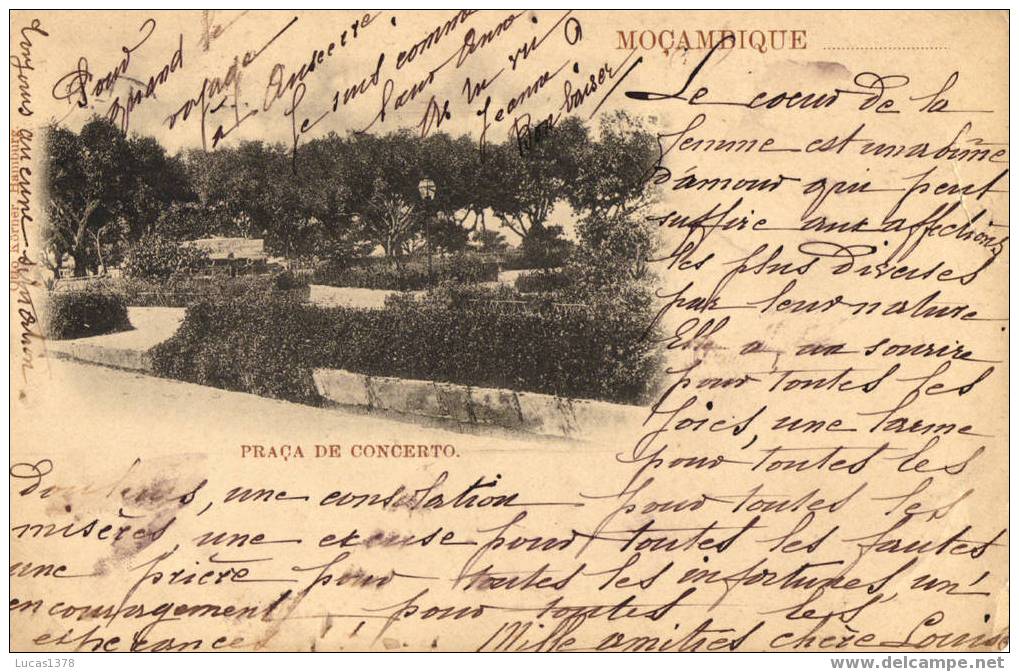 MOÇAMBIQUE
Le coeur de la
femme est un abîme
d'amour qui peut
suffire aux affections
les plus diverses
par leur nature
Elle a un sourire
pour toutes les
joies, une larme
pour toutes les
PRAÇA DE CONCERTO.
douleurs, une consolation pour toutes les
misères, une excuse pour toutes les fautes
une prière pour toutes les infortunes, un
encouragement, pour toutes les
espérances! Mille amitiés chère Louise
Pour
quand
voyage
à
Je suis comme
Jeanne
Bon baiser
Lucas1378
www.delcampe.net